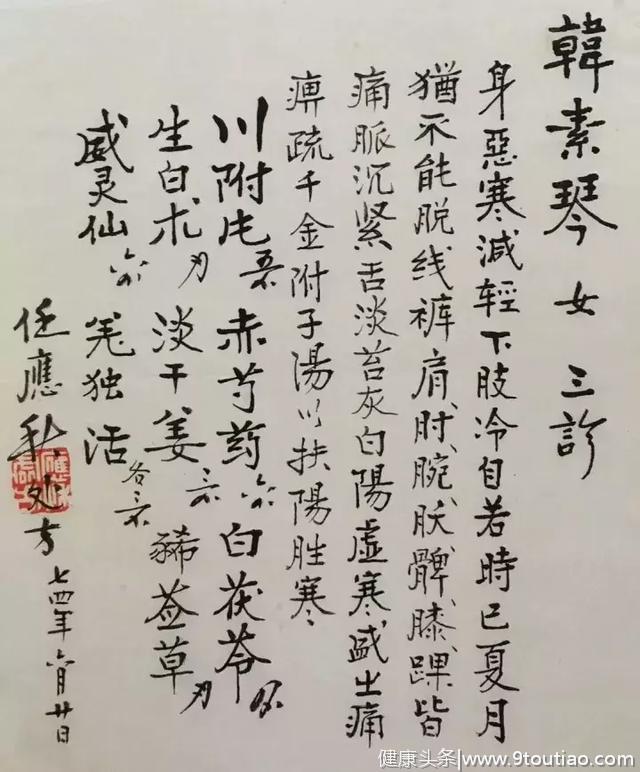 韓素琴 女 三診
身惡寒減轻下肢冷自若時已夏月
猶不能脱线裤肩、肘、腕、髀、膝、踝、皆
痛脈沉紧舌淡苔灰白陽虚寒盛之痛
痹疏千金附子湯以扶陽胜寒
川附片 赤芍药 白茯苓
生白术 淡干姜 豨莶草
威灵仙 羌独活 各三
任應秋处方 七四年六月廿日
健康头条|www.9toutiao.com